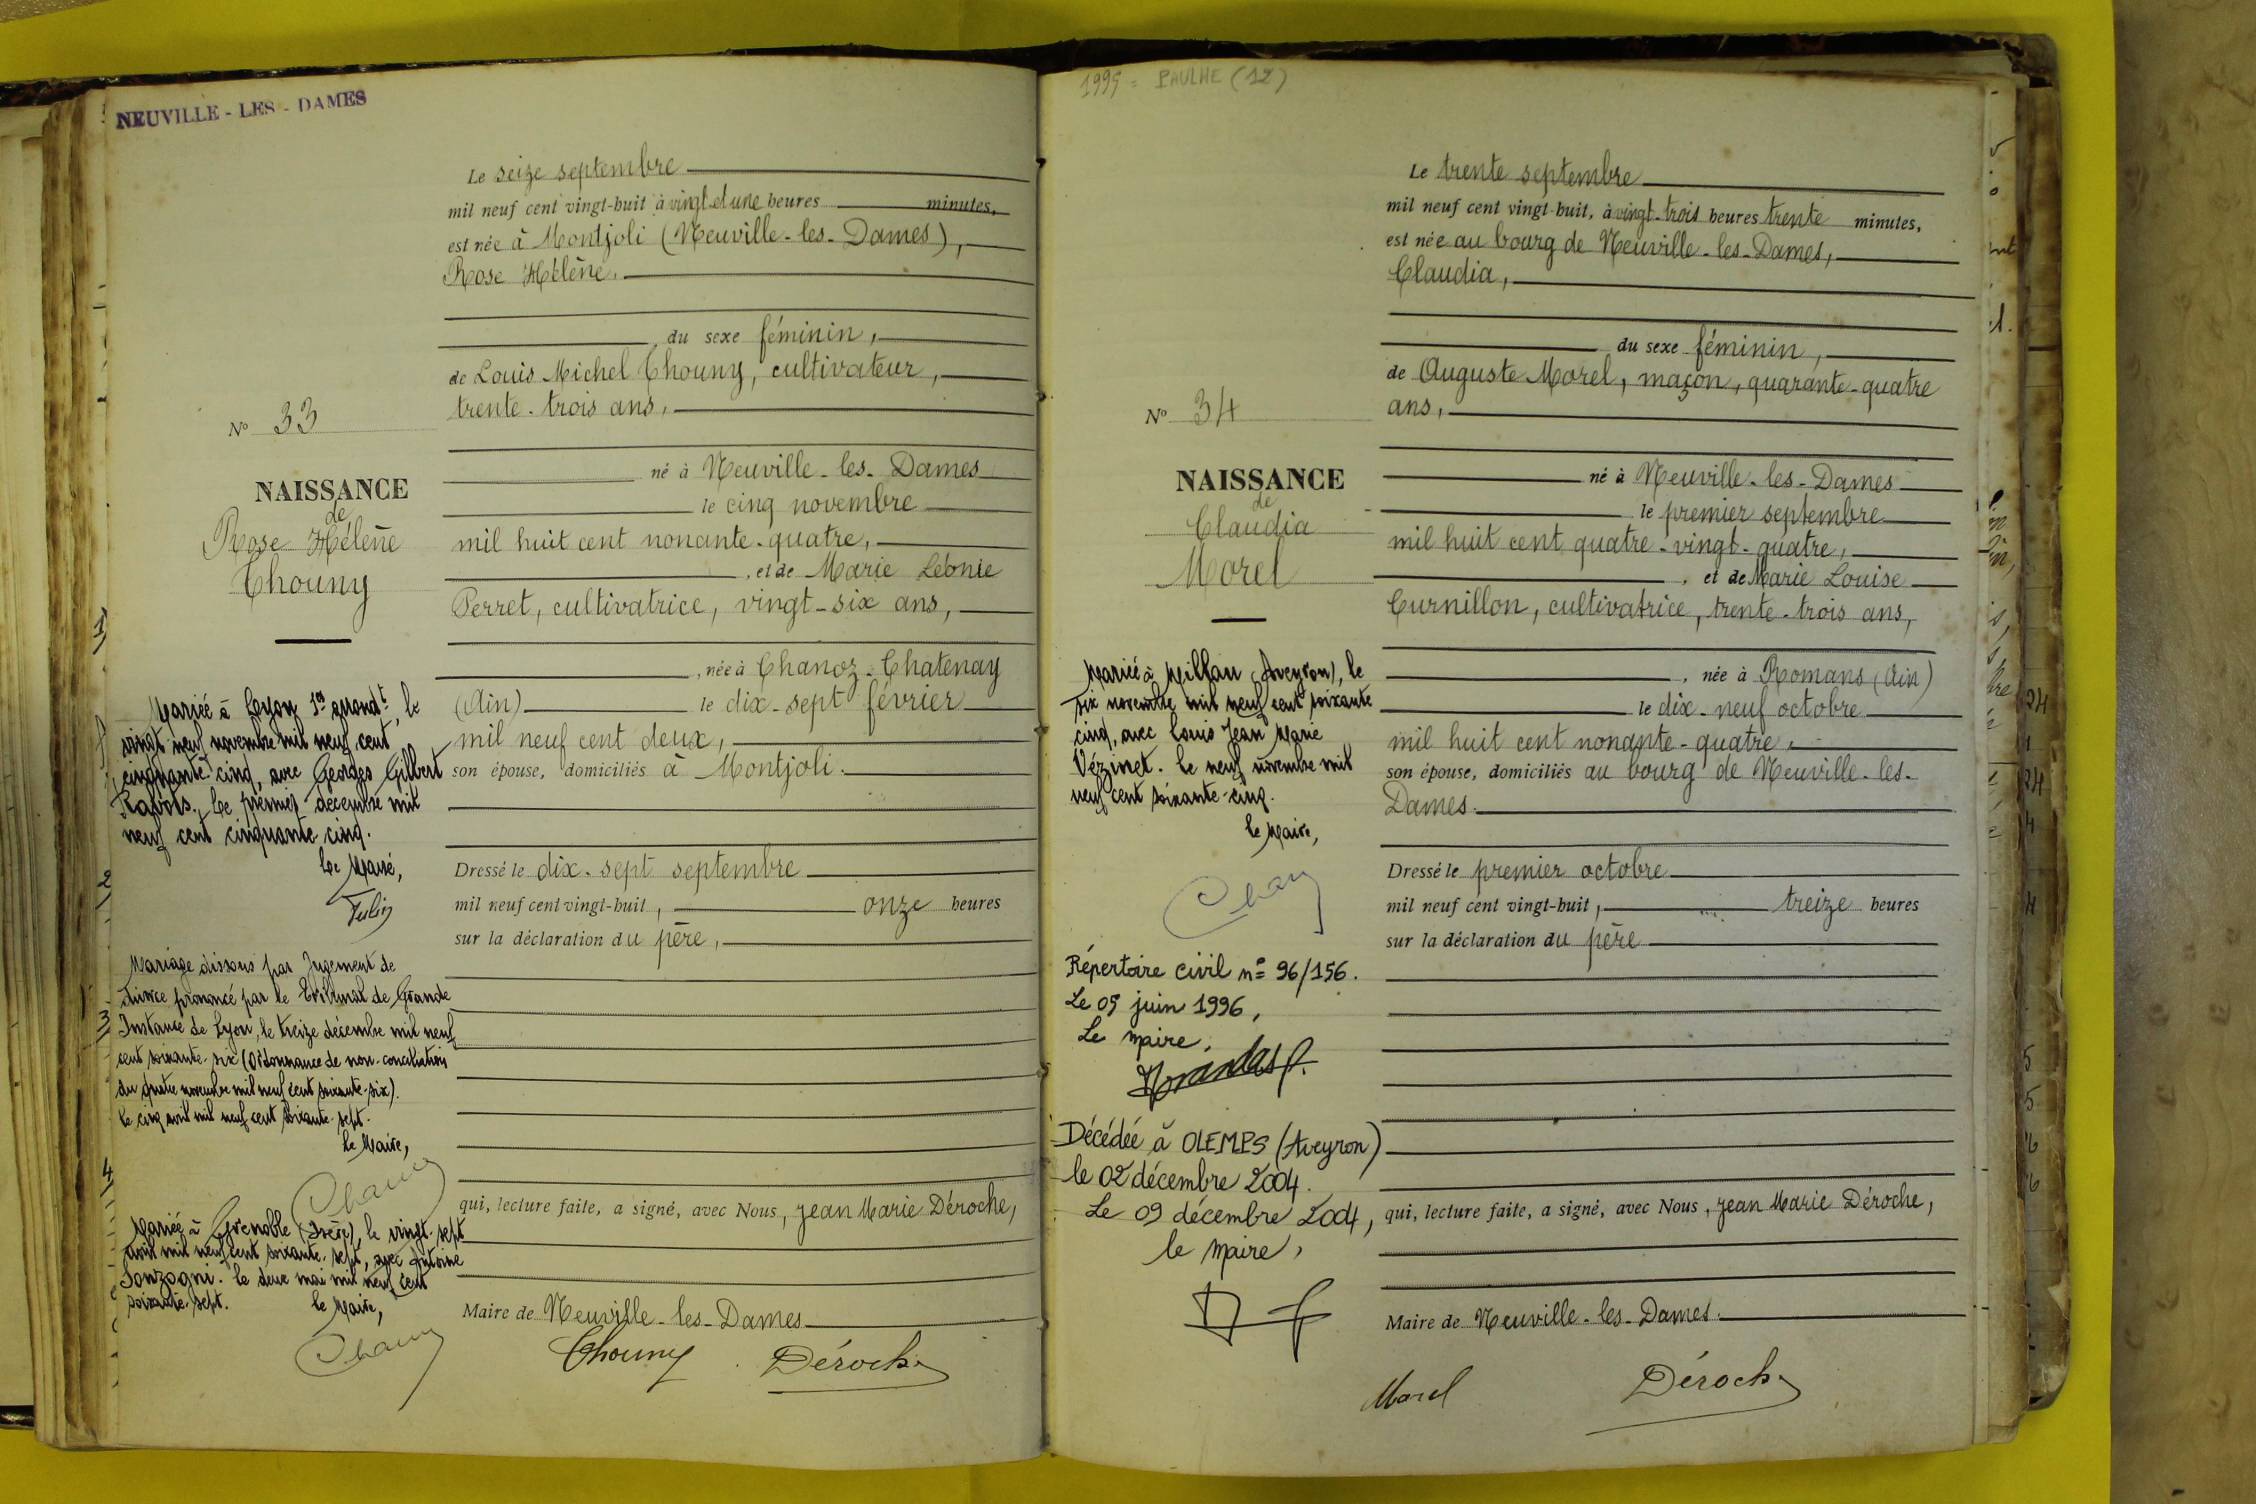 NEUVILLE - LES - DAMES
Le seize septembre
mil neuf cent vingt-huit à vingt et une heures minutes,
est née à Montjoli (Neuville-les-Dames),
Rose Hélène,
du sexe féminin,
de Louis Michel Thouny, cultivateur,
trente-trois ans,
N° 33
né à Neuville-les-Dames
le cinq novembre
NAISSANCE
de
Rose Hélène
Thouny
mil huit cent nonante-quatre,
, et de Marie Léonie
Perret, cultivatrice, vingt-six ans,
, née à Chanoz-Chatenay
(Ain) le dix-sept février
mil neuf cent deux,
son épouse, domiciliés à Montjoli.
Mariée à Lyon 1er arrondt, le
vingt neuf novembre mil neuf cent
cinquante-cinq, avec Georges Gilbert
le premier décembre mil
neuf cent cinquante cinq.
Le Maire,
Dressé le dix-sept septembre
mil neuf cent vingt-huit, onze heures
sur la déclaration du père,
Mariage dissous par Jugement de
divorce prononcé par le Tribunal de Grande
Instance de Lyon, le treize décembre mil neuf
cent soixante-six (Ordonnance de non-conciliation
du quatre novembre mil neuf cent soixante-six).
Le cinq avril mil neuf cent soixante-sept.
Le Maire,
Mariée à Grenoble (Isère), le vingt-sept
avril mil neuf cent soixante-sept, avec Antoine
Sonzogni. Le deux mai mil neuf cent
soixante-sept.
Le Maire,
qui, lecture faite, a signé, avec Nous, Jean Marie Déroche,
Maire de Neuville-les-Dames
Thouny Déroche
1995 = PAULHE (12)
Le trente septembre
mil neuf cent vingt-huit, à vingt-trois heures trente minutes,
est née au bourg de Neuville-les-Dames,
Claudia,
du sexe féminin,
de Auguste Morel, maçon, quarante-quatre
ans,
N° 34
né à Neuville-les-Dames
le premier septembre
NAISSANCE
de
Claudia
Morel
mil huit cent quatre-vingt-quatre,
, et de Marie Louise
Curnillon, cultivatrice, trente-trois ans,
, née à Romans (Ain)
le dix-neuf octobre
mil huit cent nonante-quatre,
son épouse, domiciliés au bourg de Neuville-les-
Dames.
Mariée à Millau (Aveyron), le
six novembre mil neuf cent soixante
cinq, avec Louis Jean Marie
Vézinet. Le neuf novembre mil
neuf cent soixante-cinq.
Le Maire,
Dressé le premier octobre
mil neuf cent vingt-huit, treize heures
sur la déclaration du père
Répertoire civil n° 96/156.
Le 05 juin 1996,
Le maire,
Décédée à OLEMPS (Aveyron)
le 02 décembre 2004.
Le 09 décembre 2004,
le maire,
qui, lecture faite, a signé, avec Nous, Jean Marie Déroche,
Maire de Neuville-les-Dames.
Morel Déroche